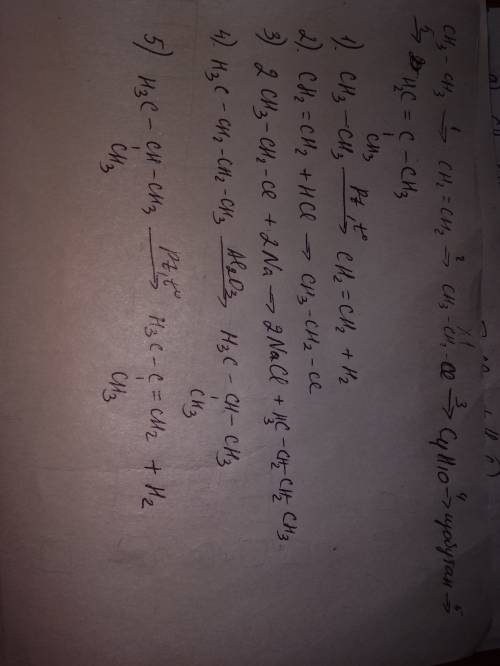 CH3 - CH3 →1 CH2 = CH2 →2 CH3 - CH2 - Cl →3 C4H10 →4 изобутан →5
→5 H2C = C - CH3
CH3
1). CH3 - CH3 Pt, t° → CH2 = CH2 + H2
2). CH2 = CH2 + HCl → CH3 - CH2 - Cl
3) 2 CH3 - CH2 - Cl + 2Na → 2NaCl + H3C - CH2 CH2 CH3
4). H3C - CH2 - CH2 - CH3 Al2O3 → H3C - CH - CH3
CH3
5) H3C - CH - CH3 Pt, t° → H3C - C = CH2 + H2
CH3 CH3